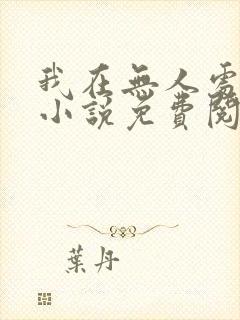 我在無人處
小說免費閱
葉丹